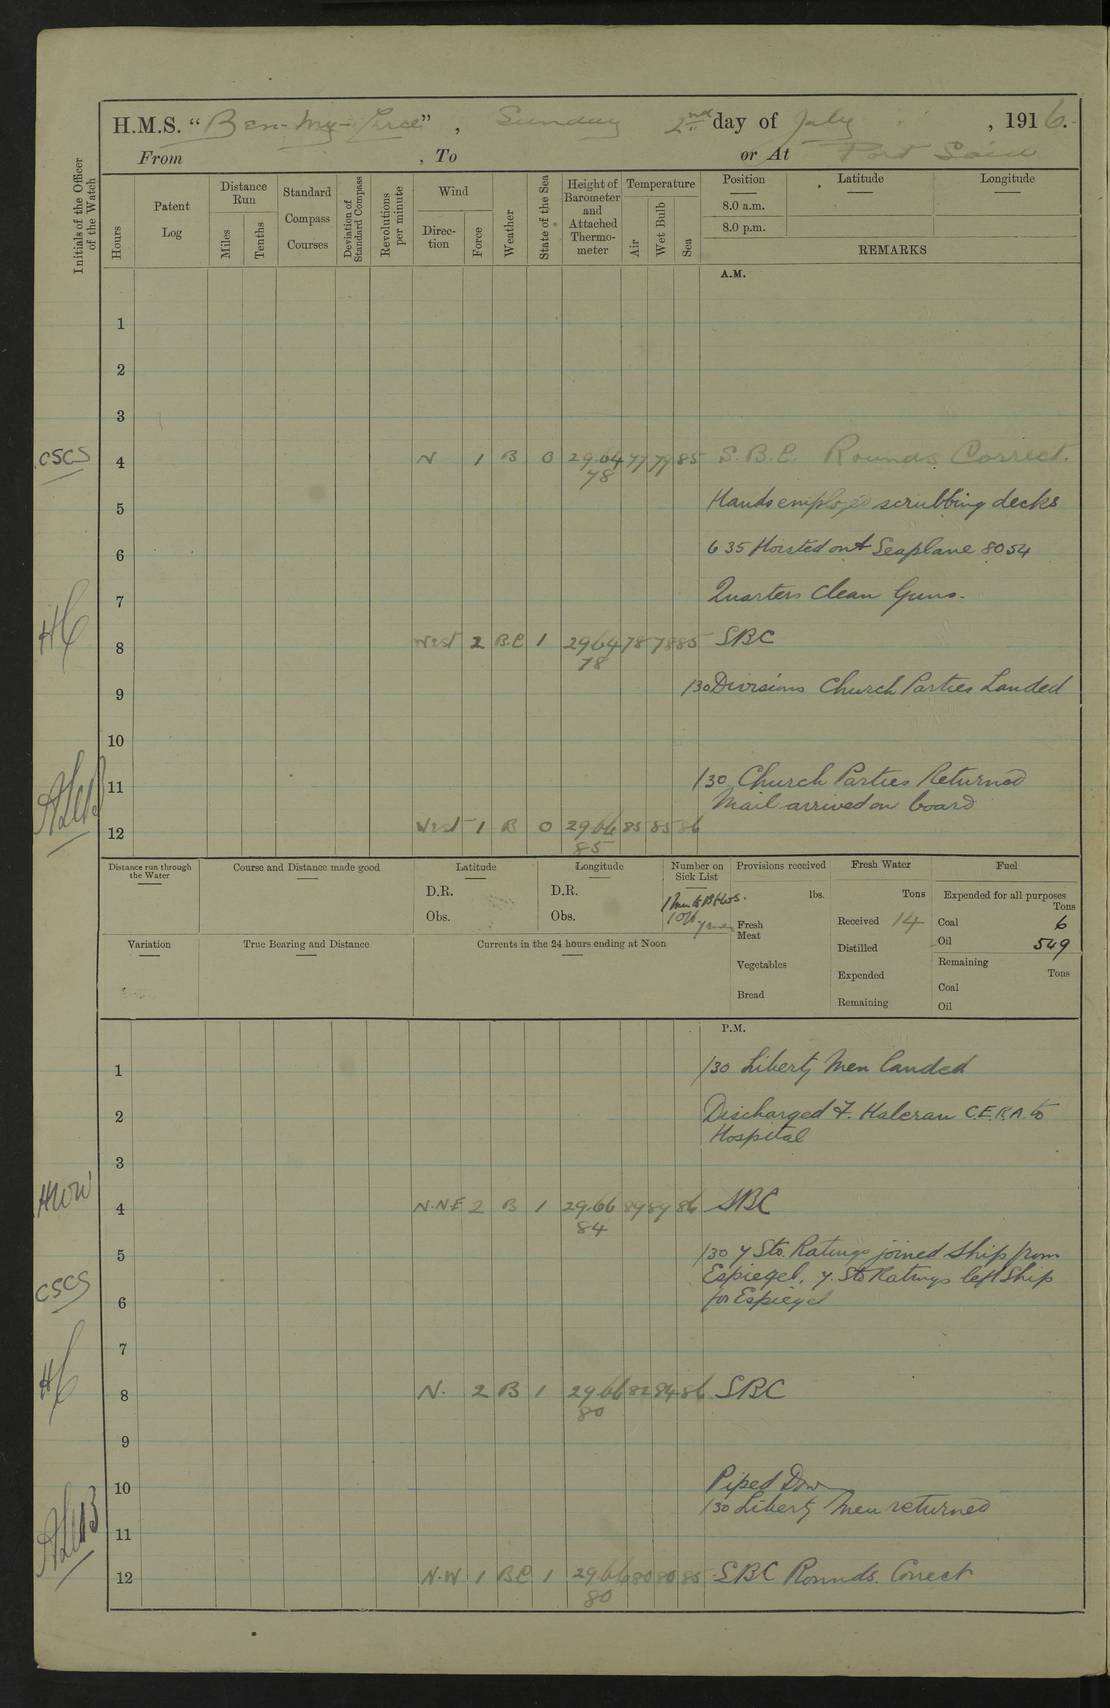 H.M.S. "Ben-My-Chree", Sunday 2nd day of July, 1916.
From , To or At Port Said
Initials of the Officer of the Watch
Hours
Patent Log
Distance Run
Miles
Tenths
Standard Compass Courses
Deviation of Standard Compass
Revolutions per minute
Wind
Direction
Force
Weather
State of the Sea
Height of Barometer and Attached Thermometer
Temperature
Air
Wet Bulb
Sea
Position Latitude Longitude
8.0 a.m.
8.0 p.m.
REMARKS
A.M.
1
2
3
CSCS 4 N 1 B 0 29.64 77 79 85 S.B.C. Rounds Correct.
78
5 Hands employed scrubbing decks
6 6 35 Hoisted out Seaplane 8054
7 Quarters Clean Guns.
HC
8 West 2 B.C 1 2964 78 78 85 SBC
78
9 /30 Divisions Church Parties Landed
10
11 /30 Church Parties Returned
Mail arrived on board
12 West 1 B 0 2966 85 85 86
85
Distance run through the Water
Course and Distance made good
Latitude
D.R.
Obs.
Longitude
D.R.
Obs.
Number on Sick List
Provisions received
lbs.
Fresh Meat
Vegetables
Bread
Fresh Water
Tons
Received 14
Distilled
Expended
Remaining
Fuel
Expended for all purposes
Tons
Coal 6
Oil 549
Remaining
Tons
Coal
Oil
Variation
True Bearing and Distance
Currents in the 24 hours ending at Noon
P.M.
1 /30 Liberty Men landed
2 Discharged F. Halcran C.E.R.A. to
Hospital
3
4 N.N.E 2 B 1 29.66 89 89 86 SBC
84
5 /30 7 Sto. Ratings joined Ship from
Espiegel, 7. Sto Ratings left Ship
CSCS
6 for Espiegel
7
HC
8 N. 2 B 1 29.66 82 84 86 SBC
80
9
10 Piped Down
/30 Liberty Men returned
11
12 N.W 1 BC 1 2966 80 80 85 SBC Rounds. Correct
80